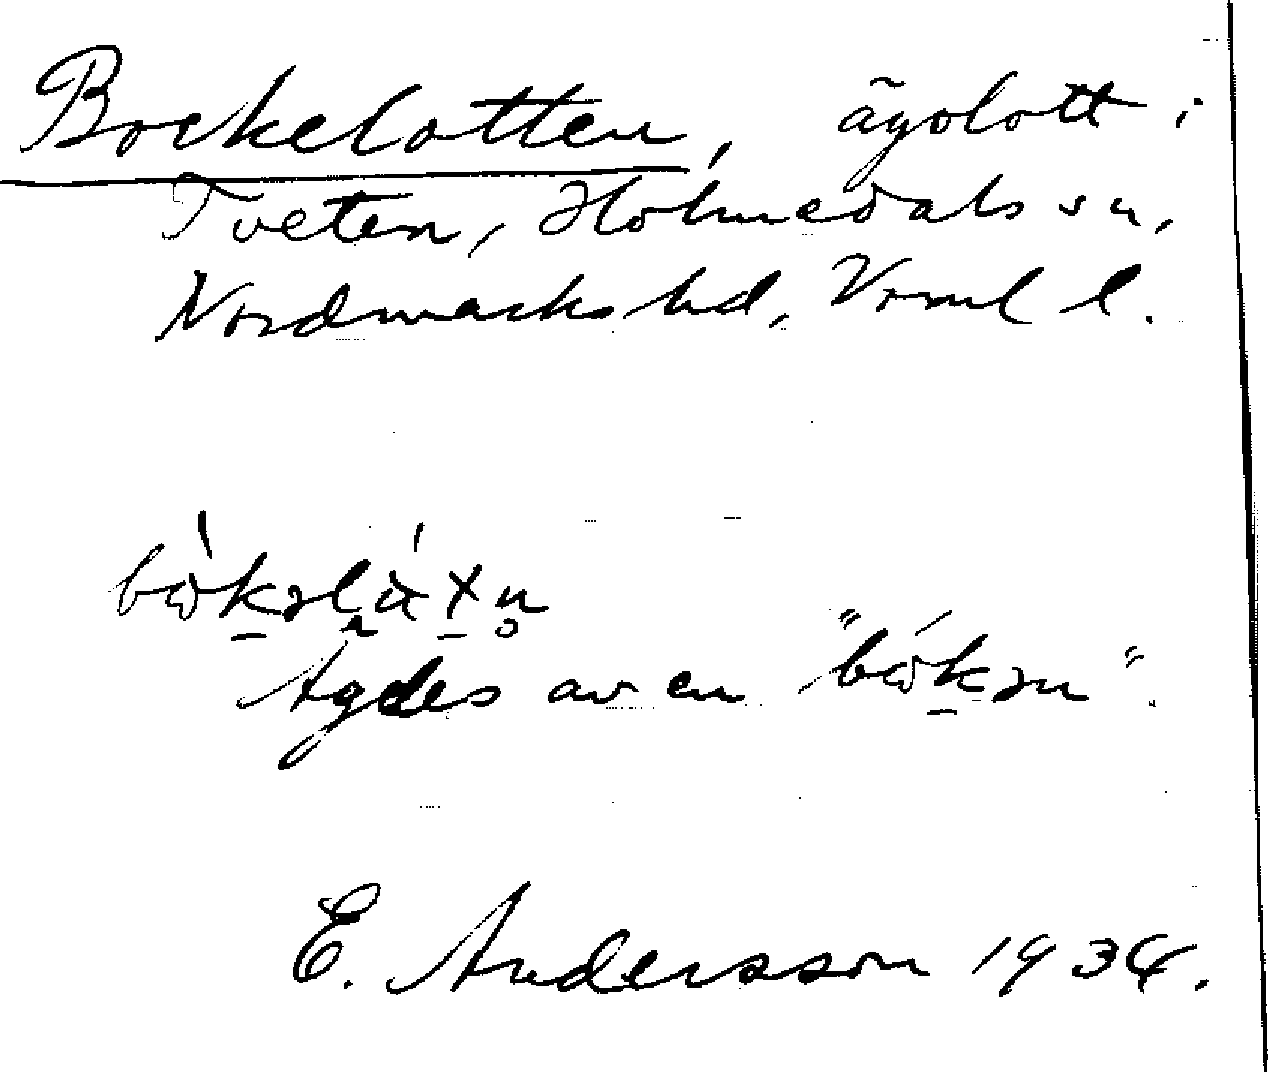 Bockelotten, ägolott i
Tveten, Holmedals sn,
Nordmarks hd, Vrml l.
Ägdes av en
E. Andersson 1934.